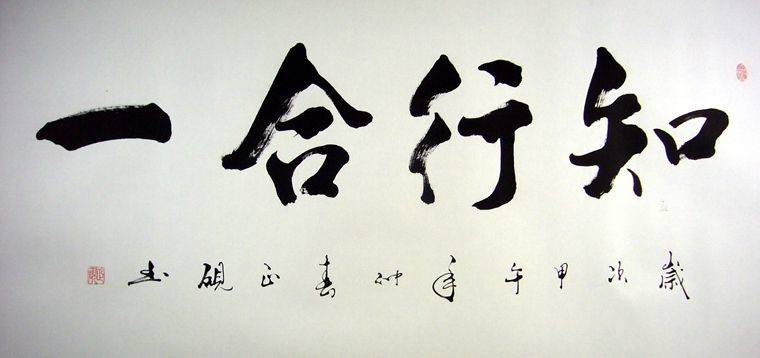 知行合一
歲次甲午年仲春正硯书